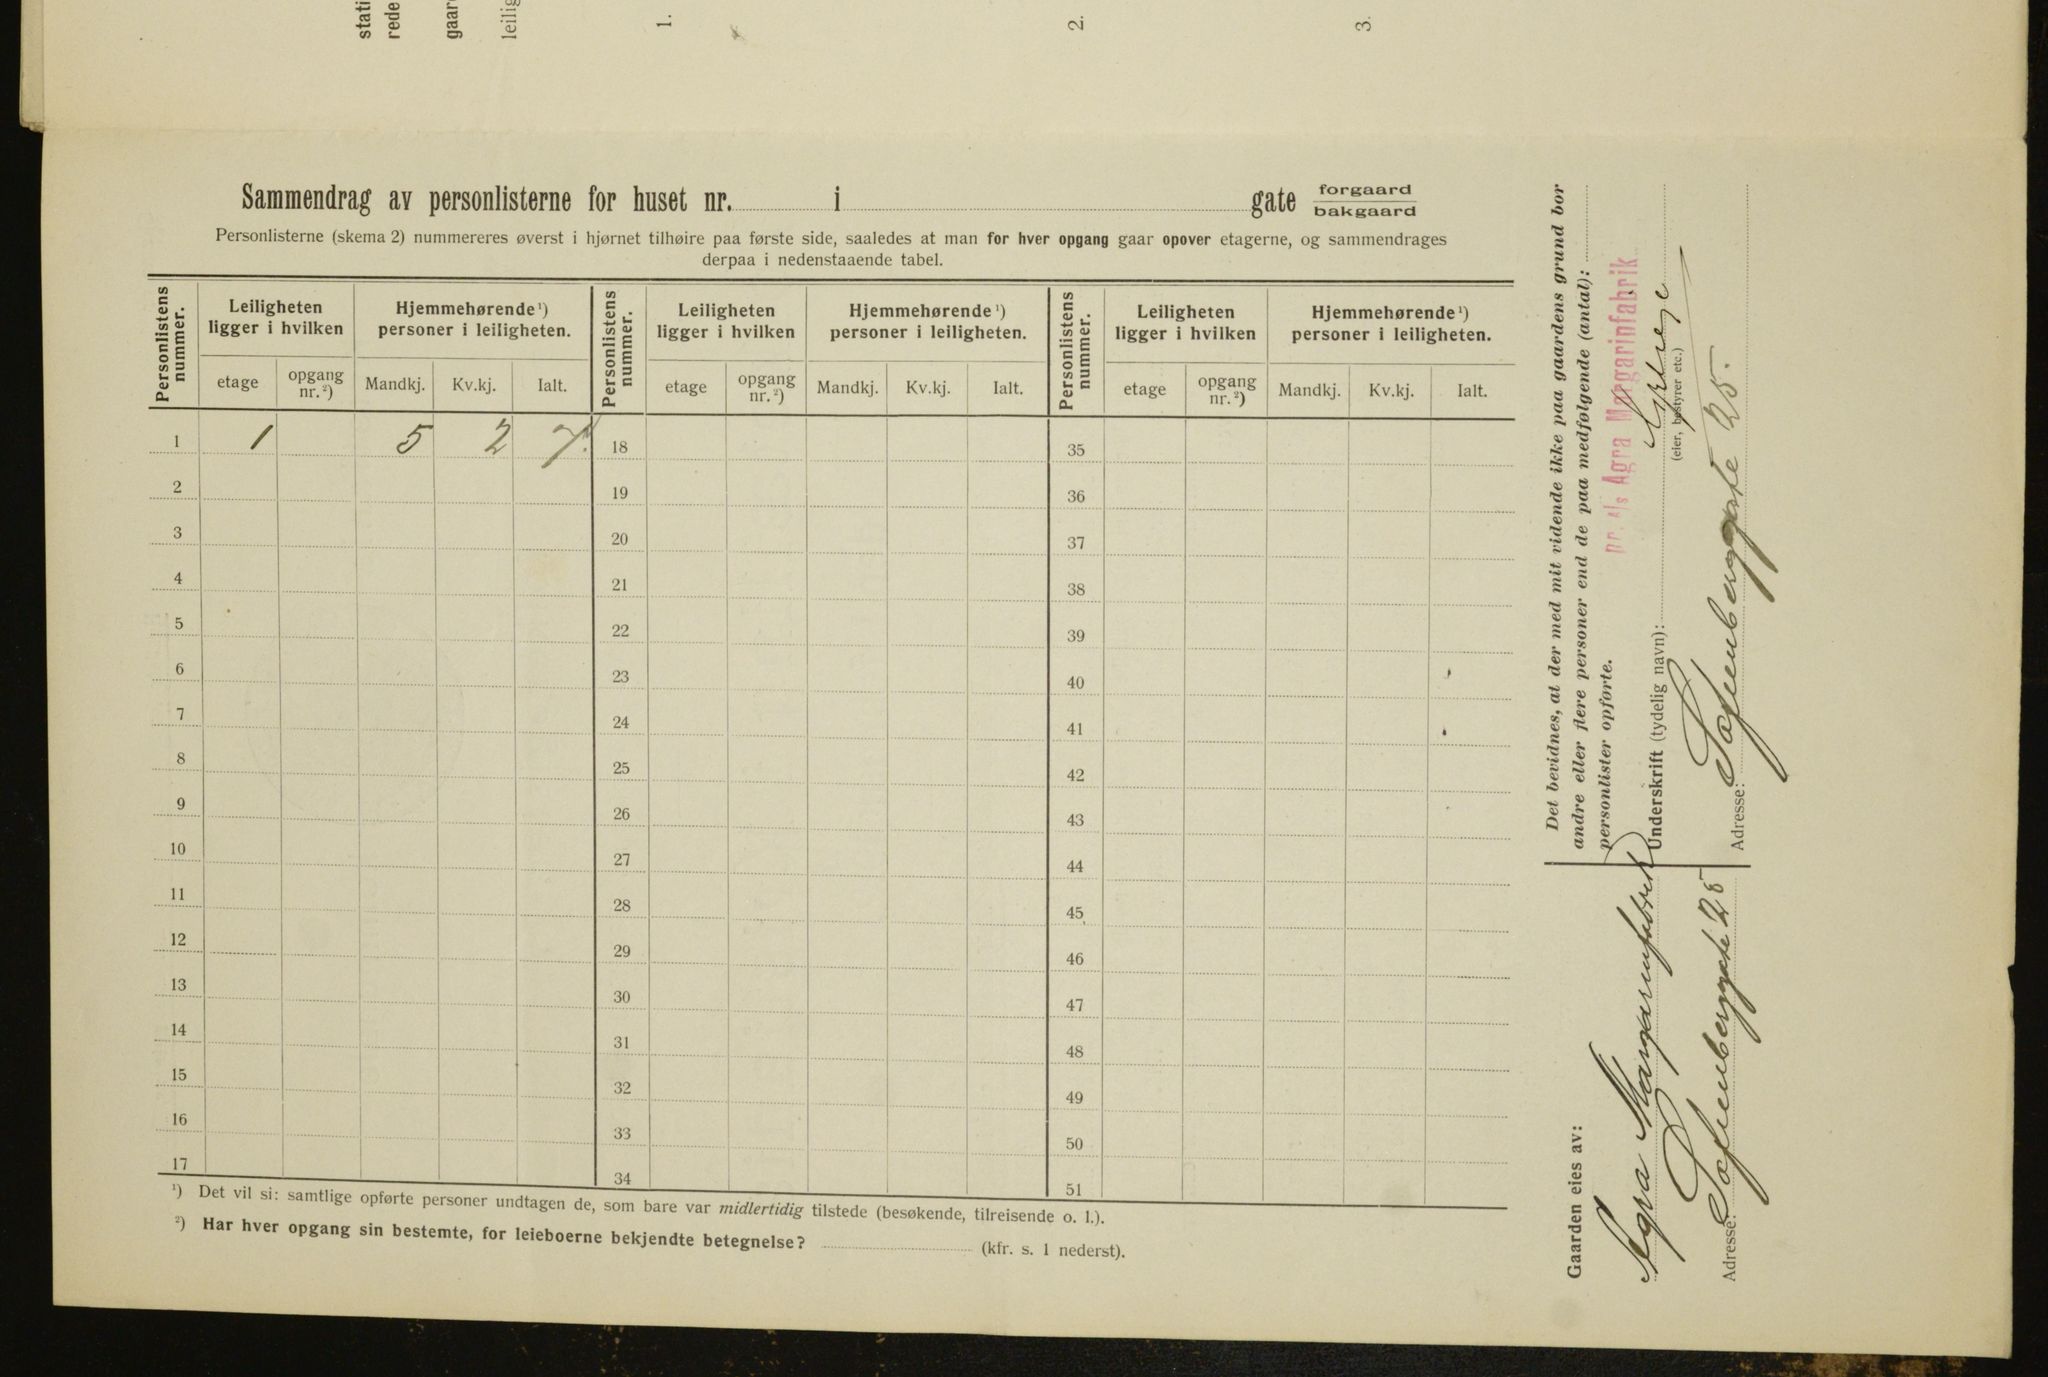 stati
rede
gaar
leilig
1.
2.
3.
Sammendrag av personlisterne for huset nr. i gate forgaard
bakgaard
Personlisterne (skema 2) nummereres øverst i hjørnet tilhøire paa første side, saaledes at man for hver opgang gaar opover etagerne, og sammendrages
derpaa i nedenstaaende tabel.
Personlistens nummer. Leiligheten ligger i hvilken Hjemmehørende ¹) personer i leiligheten. Personlistens nummer. Leiligheten ligger i hvilken Hjemmehørende ¹) personer i leiligheten. Personlistens nummer. Leiligheten ligger i hvilken Hjemmehørende ¹) personer i leiligheten.
etage opgang nr. ²) Mandkj. Kv.kj. Ialt. etage opgang nr. ²) Mandkj. Kv.kj. Ialt. etage opgang nr. ²) Mandkj. Kv.kj. Ialt.
1 1 5 2 7. 18 35
2 19 36
3 20 37
4 21 38
5 22 39
6 23 40
7 24 41
8 25 42
9 26 43
10 27 44
11 28 45
12 29 46
13 30 47
14 31 48
15 32 49
16 33 50
17 34 51
¹) Det vil si: samtlige opførte personer undtagen de, som bare var midlertidig tilstede (besøkende, tilreisende o. l.).
²) Har hver opgang sin bestemte, for leieboerne bekjendte betegnelse? (kfr. s. 1 nederst).
Det bevidnes, at der med mit vidende ikke paa gaardens grund bor
andre eller flere personer end de paa medfølgende (antal):
personlister opførte.
pr. A/s Agra Margarinfabrik
Underskrift (tydelig navn):
(eier, bestyrer etc.)
Adresse: Sofienberggate 25.
Gaarden eies av:
Agra Margarinfabrik
Adresse: Sofienberggate 25